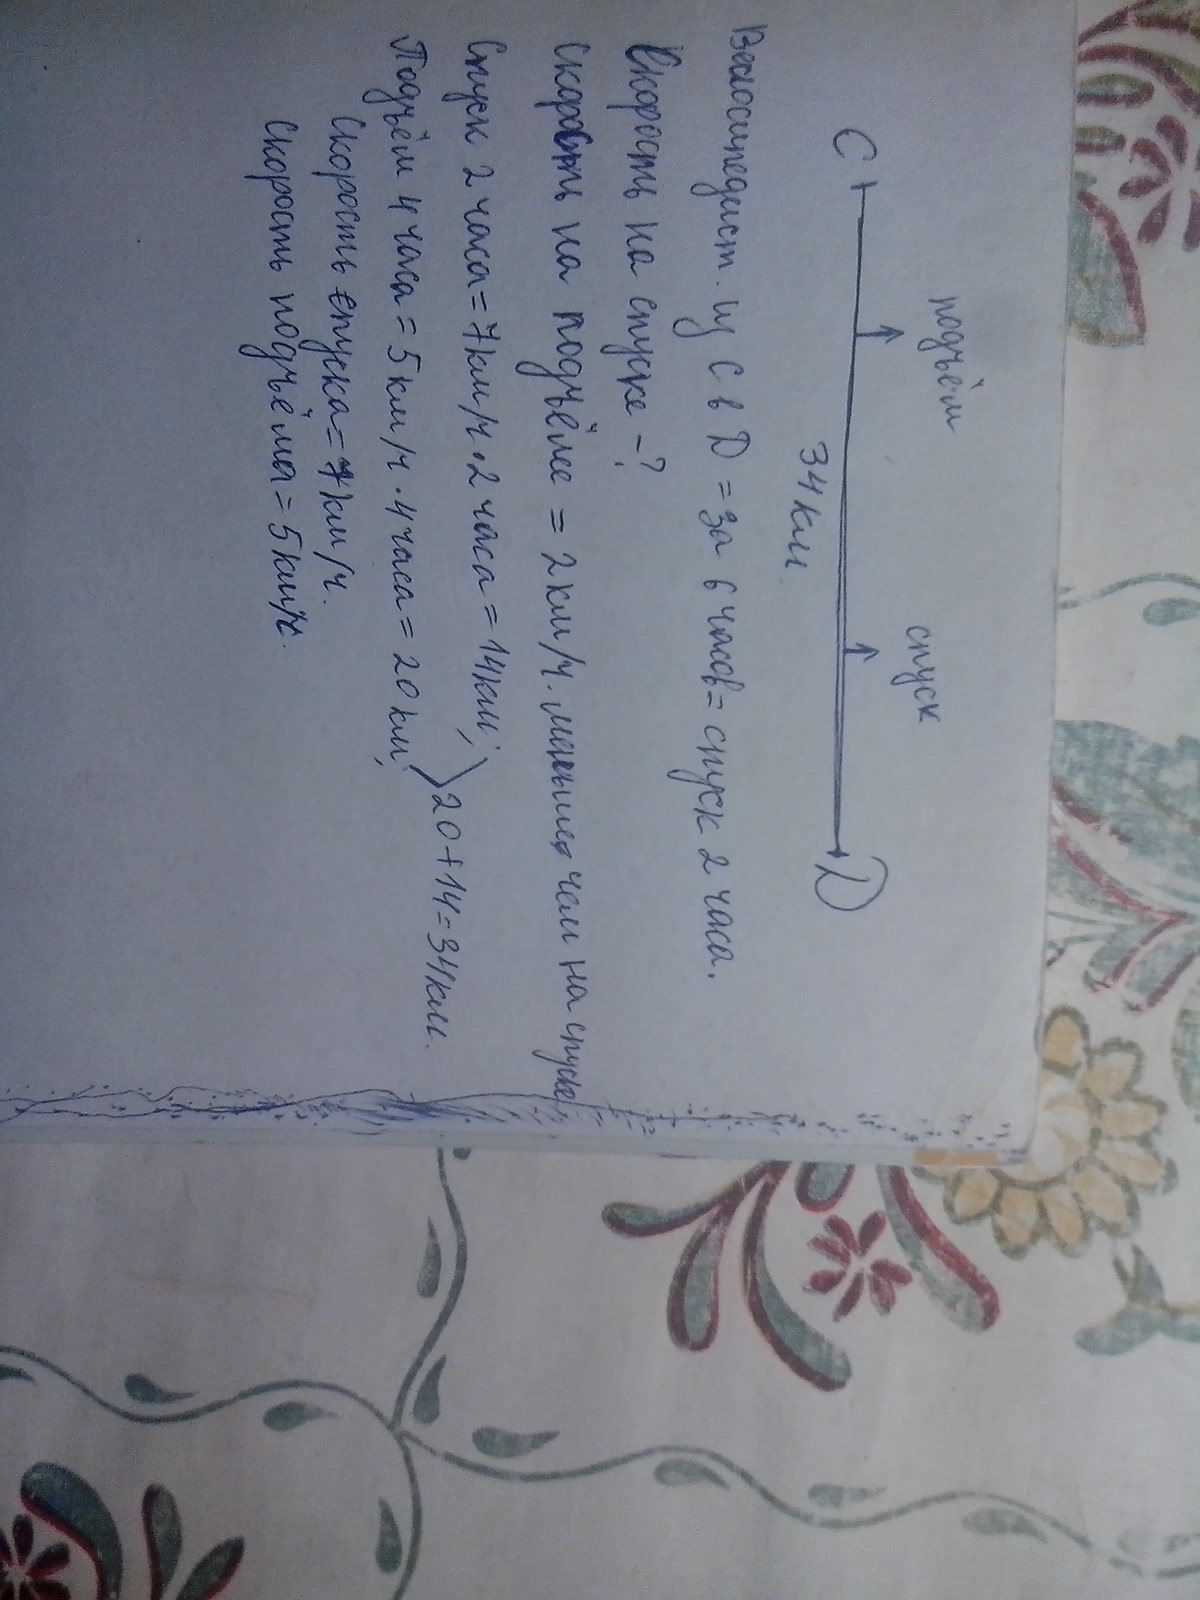 подъём спуск
С D
34 км.
Велосипедист. из С в D = за 6 часов = спуск 2 часа.
Скорость на спуске -?
Скорость на подъёме = 2 км/ч. меньше, чем на спуске,
Спуск 2 часа = 7 км/ч · 2 часа = 14 км;
Подъём 4 часа = 5 км/ч · 4 часа = 20 км; 20+14=34 км.
Скорость спуска = 7 км/ч.
Скорость подъёма = 5 км/ч.